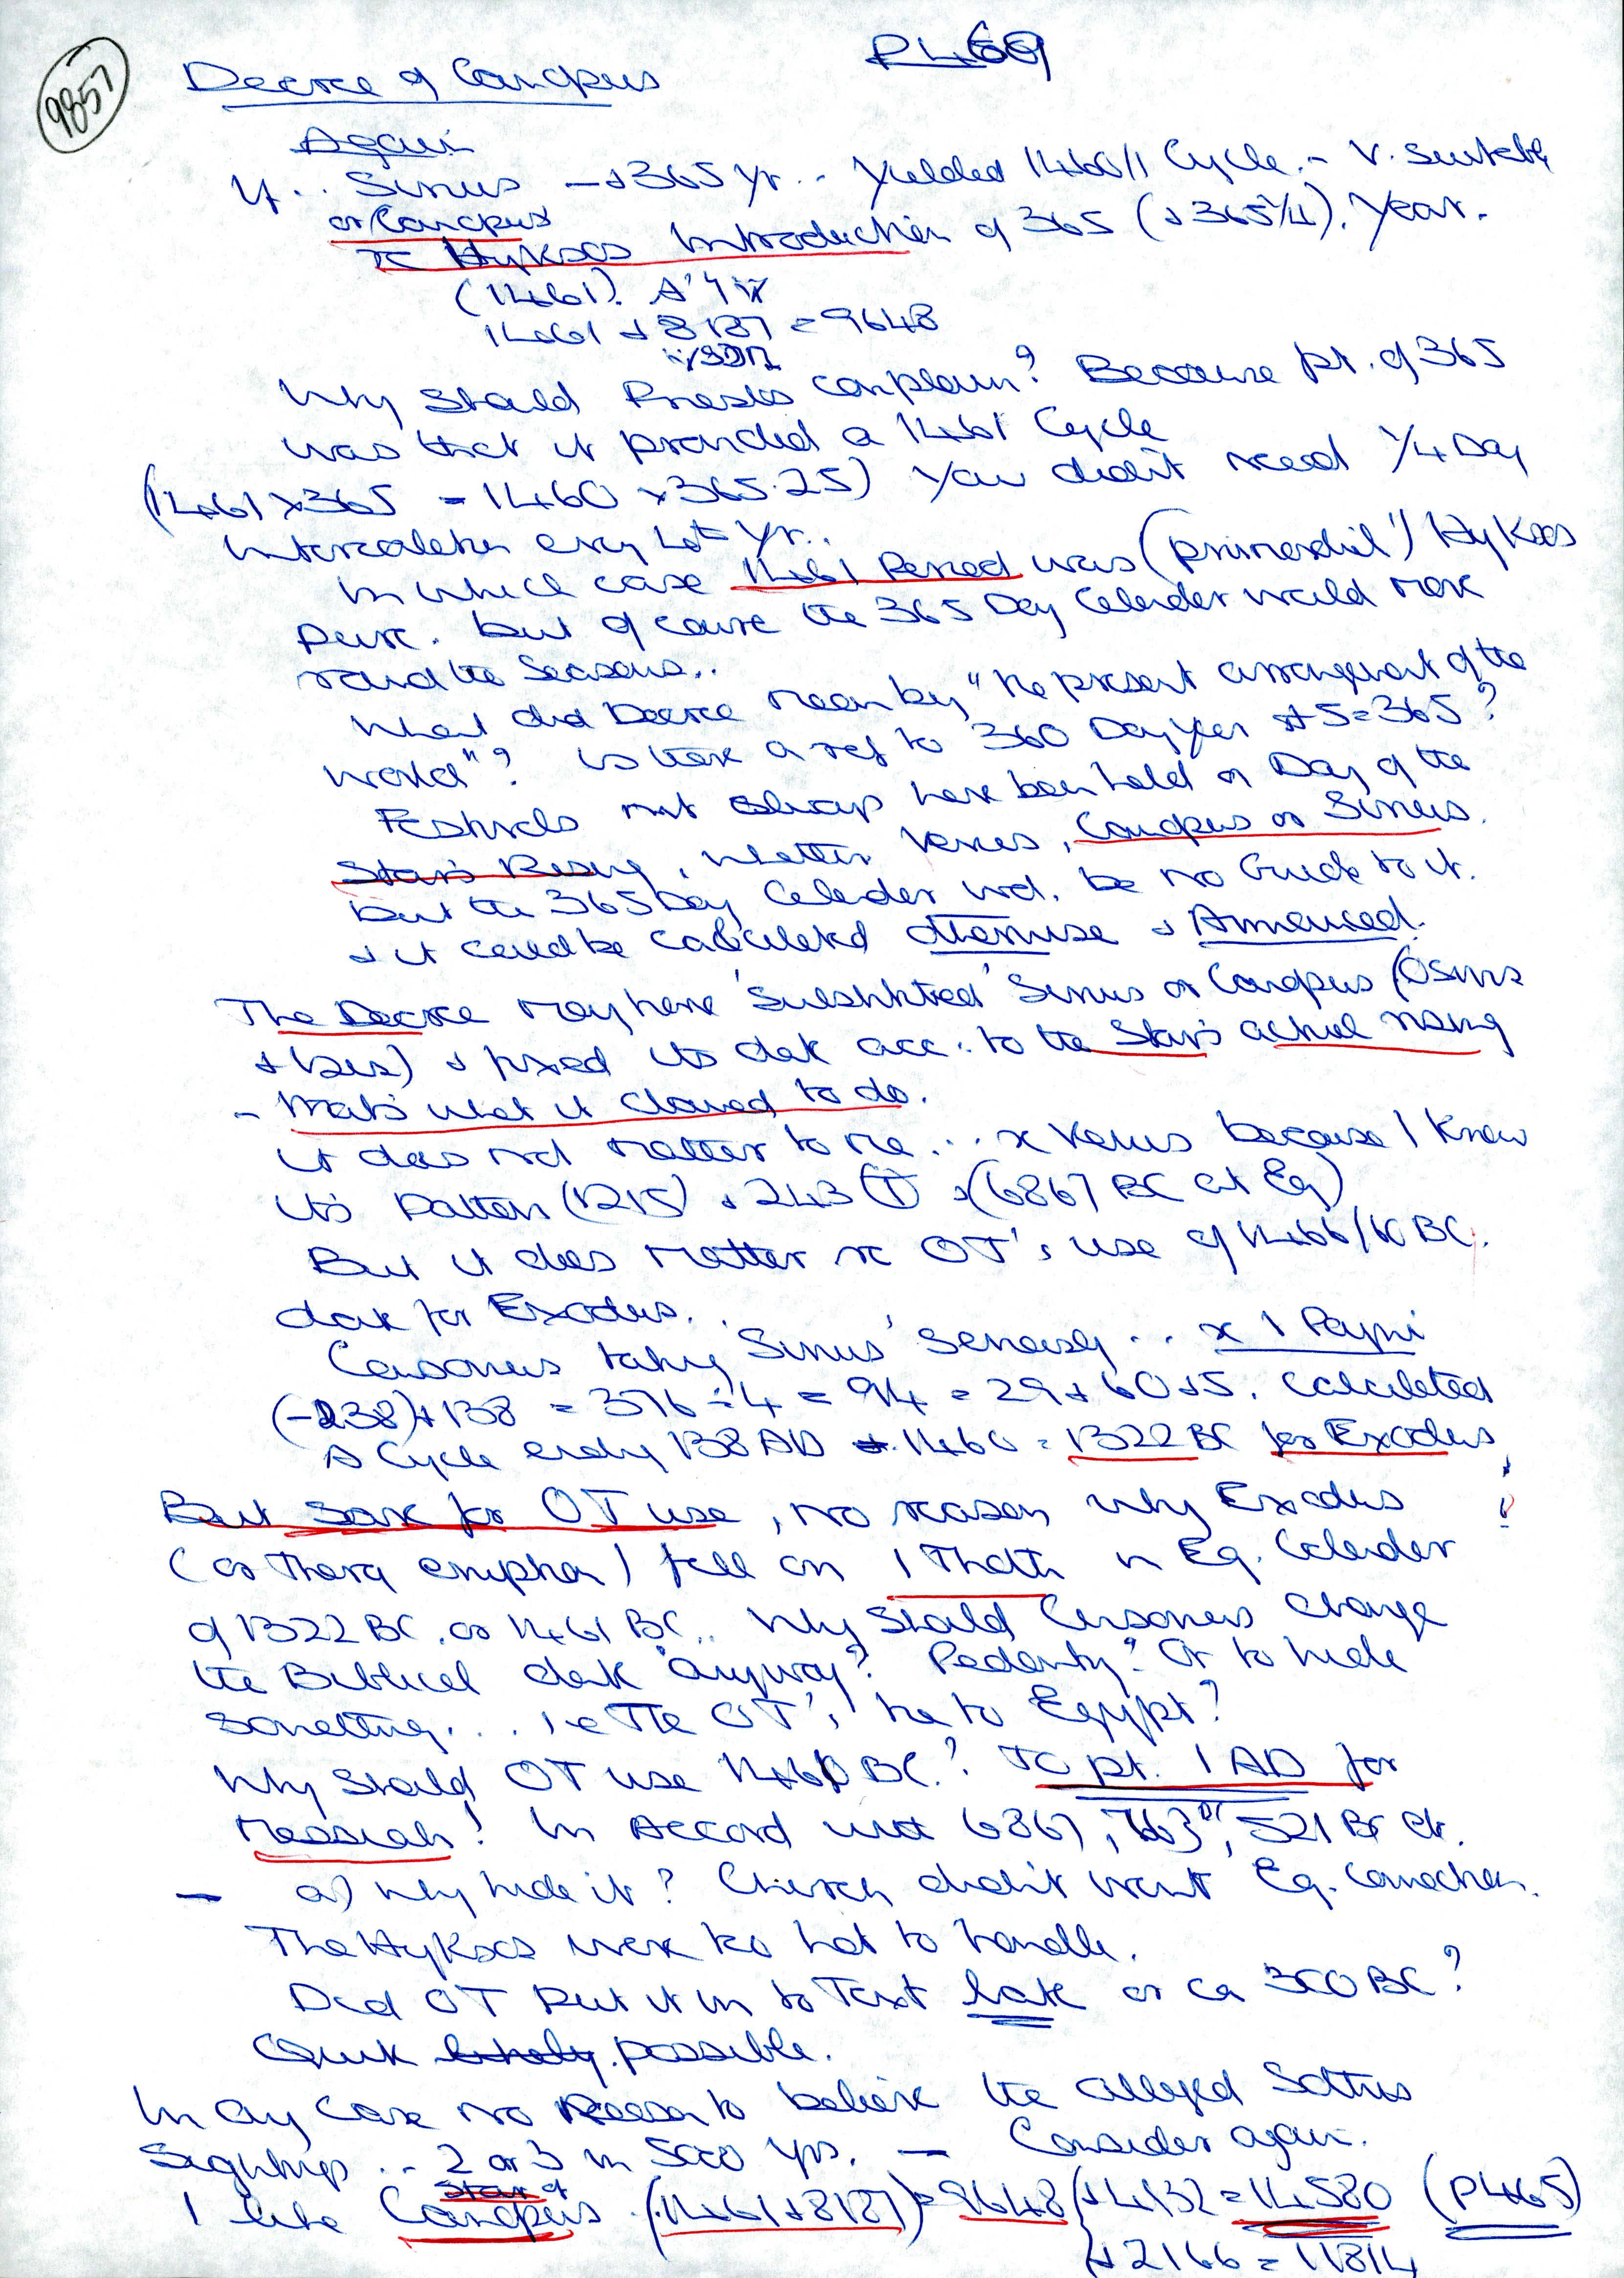 P469
9857
Decree of Canopus
Again
If .. Sirius → 365 yr .. yielded 1460/1 Cycle - V. suitable
or Canopus
to Hyksos Introduction of 365 (+ 365¼). Year.
(1461)
1461 + 8187 = 9648
Why should Priests complain? Because pt. of 365
was that it provided a 1461 Cycle
(1461 x 365 = 1460 x 365.25) You didn't need ¼ Day
Intercalation every 4th Yr..
In which case 1461 Period was (primordial') Hyksos
pure. but of course the 365 Day Calendar would move
round the Seasons..
What did Decree mean by "the present arrangement of the
world"? Is there a ref to 360 Day year + 5 = 365?
Festivals must always have been held on Day of the
Star's Rising, whether Venus, Canopus or Sirius.
but the 365 Day Calendar wd. be no Guide to it.
& it could be calculated otherwise & Announced.
The Decree may have 'Substituted' Sirius or Canopus (Osiris
& Isis) & fixed its date acc. to the Star's actual rising
- that's what it claimed to do.
It does not matter to me ... x Venus because I know
its Pattern (1215) + 243 (T) , (6867 BC at Eq)
But it does matter re OT's use of 1466/60 BC.
date for Exodus..
Censorius taking 'Sirius' seriously .. x 1 Payni
(-238) + 138 = 376 ÷ 4 = 94 = 29 + 60 + 5. Calculated
A Cycle ending 138 AD + 1460 = 1322 BC for Exodus!
But save for OT use, no reason why Exodus
(or Thera eruption) fell on 1 Thoth in Eq. Calendar
of 1322 BC. or 1461 BC.. Why should Censorius change
the Biblical date anyway? Pedantry? Or to hide
something... i.e The OT's tie to Egypt?
Why should OT use 1460 BC? To pt. 1 AD for
Messiah! In Accord with 6867, 763, 521 BC etc.
- a) Why hide it? Church didn't want Eg. Connection.
The Hyksos were too hot to handle.
Did OT put it in to Text late or ca 300 BC?
Quite likely possible.
In any case no Reason to believe the alleged Sothis
Sightings .. 2 or 3 in 5000 yrs. — Consider again.
Star of
I like Canopus. (1461 + 8187) = 9648 (+ 4932 = 14580 (P465)
+ 2166 = 11814